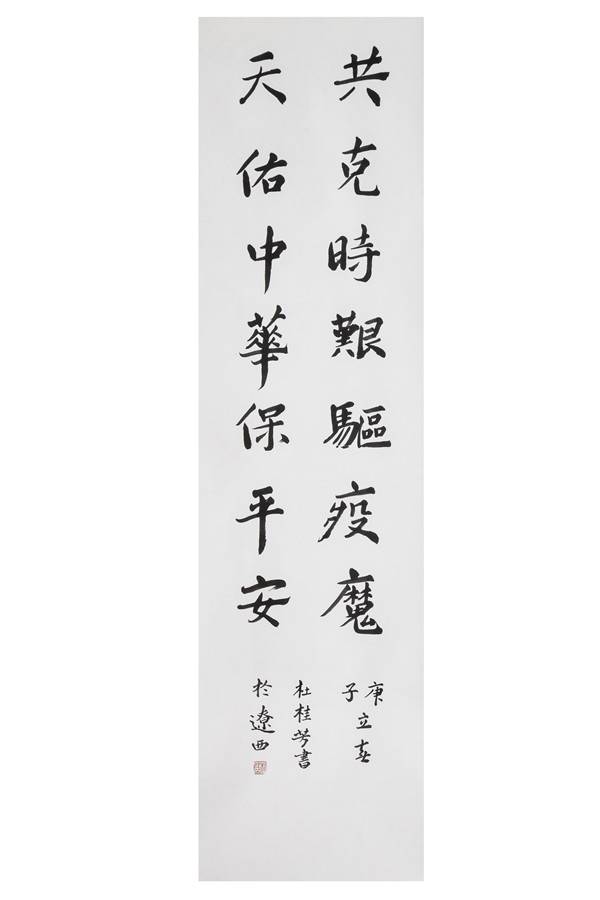 共克時艱驅疫魔
天佑中華保平安
庚
子立春
杜桂芳書
於遼西